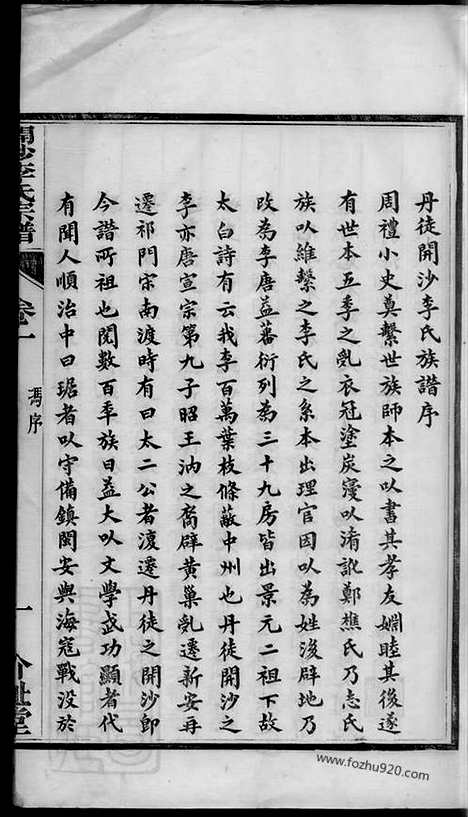 丹徒開沙李氏族譜序
周禮小史奠繫世族師本之以書其孝友婣睦其後遂
有世本五季之亂衣冠塗炭寖以淆訛鄭樵氏乃志氏
族以維繫之李氏之系本出理官因以為姓浚辟地乃
改為李唐益蕃衍列為三十九房皆出景元二祖下故
太白詩有云我李百萬葉枝條蔽中州也丹徒開沙之
李亦唐宣宗第九子昭王汭之裔辟黃巢亂遷新安再
遷祁門宗南渡時有曰太二公者復遷丹徒之開沙即
今譜所祖也閱數百年族日益大以文學武功顯者代
有聞人順治中曰琚者以守備鎮閩安與海寇戰没於
開沙李氏宗譜
卷一
馮序
一
www.fozhu920.com